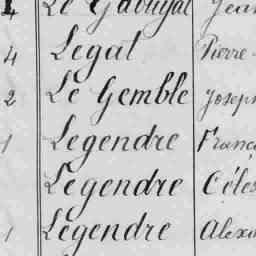 4 Le Gabuyal Jean
4 Legal Pierre
2 Le Gemble Joseph
1 Legendre Franç
Legendre Céles
1 Legendre Alexa